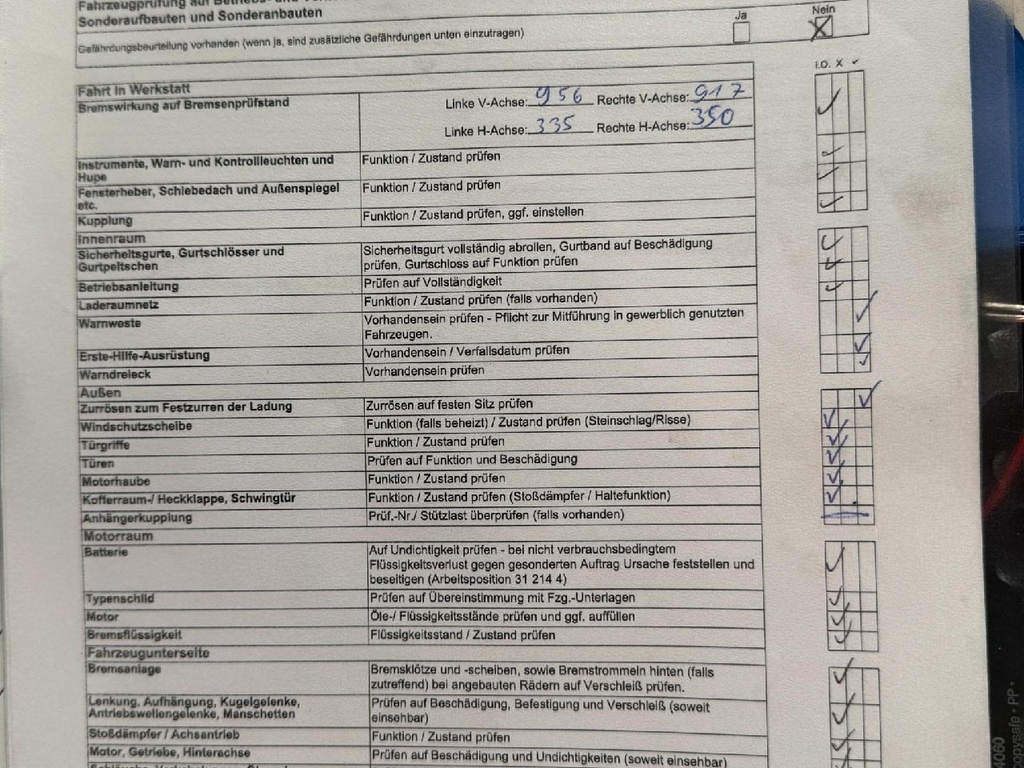 Fahrzeugprüfung auf Betriebs- und
Sonderaufbauten und Sonderanbauten
Ja Nein
Gefährdungsbeurteilung vorhanden (wenn ja, sind zusätzliche Gefährdungen unten einzutragen)
I.O. X ✓
Fahrt in Werkstatt
Bremswirkung auf Bremsenprüfstand Linke V-Achse: 956 Rechte V-Achse: 917
Linke H-Achse: 335 Rechte H-Achse: 350
Instrumente, Warn- und Kontrollleuchten und Funktion / Zustand prüfen
Hupe
Fensterheber, Schiebedach und Außenspiegel Funktion / Zustand prüfen
etc.
Kupplung Funktion / Zustand prüfen, ggf. einstellen
Innenraum
Sicherheitsgurte, Gurtschlösser und Sicherheitsgurt vollständig abrollen, Gurtband auf Beschädigung
Gurtpeitschen prüfen, Gurtschloss auf Funktion prüfen
Betriebsanleitung Prüfen auf Vollständigkeit
Laderaumnetz Funktion / Zustand prüfen (falls vorhanden)
Warnweste Vorhandensein prüfen - Pflicht zur Mitführung in gewerblich genutzten
Fahrzeugen.
Erste-Hilfe-Ausrüstung Vorhandensein / Verfallsdatum prüfen
Warndreieck Vorhandensein prüfen
Außen
Zurrösen zum Festzurren der Ladung Zurrösen auf festen Sitz prüfen
Windschutzscheibe Funktion (falls beheizt) / Zustand prüfen (Steinschlag/Risse)
Türgriffe Funktion / Zustand prüfen
Türen Prüfen auf Funktion und Beschädigung
Motorhaube Funktion / Zustand prüfen
Kofferraum-/ Heckklappe, Schwingtür Funktion / Zustand prüfen (Stoßdämpfer / Haltefunktion)
Anhängerkupplung Prüf.-Nr./ Stützlast überprüfen (falls vorhanden)
Motorraum
Batterie Auf Undichtigkeit prüfen - bei nicht verbrauchsbedingtem
Flüssigkeitsverlust gegen gesonderten Auftrag Ursache feststellen und
beseitigen (Arbeitsposition 31 214 4)
Typenschild Prüfen auf Übereinstimmung mit Fzg.-Unterlagen
Motor Öle-/ Flüssigkeitsstände prüfen und ggf. auffüllen
Bremsflüssigkeit Flüssigkeitsstand / Zustand prüfen
Fahrzeugunterseite
Bremsanlage Bremsklötze und -scheiben, sowie Bremstrommeln hinten (falls
zutreffend) bei angebauten Rädern auf Verschleiß prüfen.
Lenkung, Aufhängung, Kugelgelenke, Prüfen auf Beschädigung, Befestigung und Verschleiß (soweit
Antriebswellengelenke, Manschetten einsehbar)
Stoßdämpfer / Achsantrieb Funktion / Zustand prüfen
Motor, Getriebe, Hinterachse Prüfen auf Beschädigung und Undichtigkeiten (soweit einsehbar)
4060
copysafe • PP •